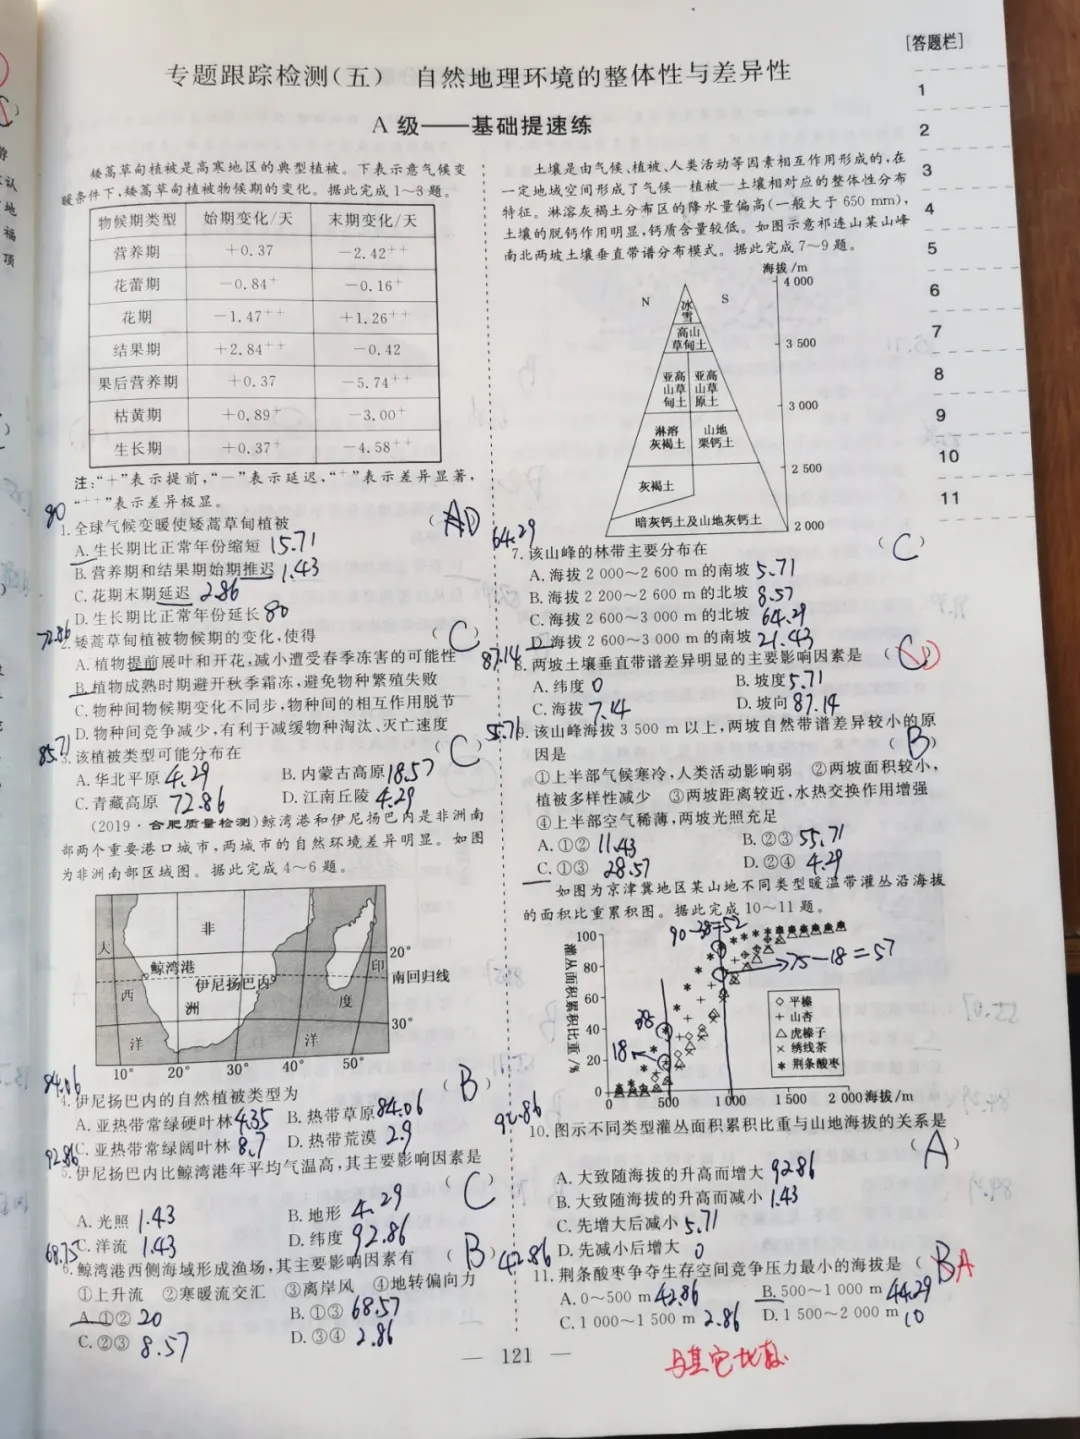 [答题栏]
专题跟踪检测(五) 自然地理环境的整体性与差异性
A 级——基础提速练
矮蒿草甸植被是高寒地区的典型植被。下表示意气候变
暖条件下,矮蒿草甸植被物候期的变化。据此完成1~3题。
物候期类型 始期变化/天 末期变化/天
营养期 +0.37 -2.42++
花蕾期 -0.84+ -0.16+
花期 -1.47++ +1.26++
结果期 +2.84++ -0.42
果后营养期 +0.37 -5.74++
枯黄期 +0.89+ -3.00+
生长期 +0.37+ -4.58++
注:“+”表示提前,“-”表示延迟,“+”表示差异显著,
“++”表示差异极显。
80
1.全球气候变暖使矮蒿草甸植被 ( AD
A.生长期比正常年份缩短 15.71
B.营养期和结果期始期推迟 1.43
C.花期末期延迟 2.86
D.生长期比正常年份延长 80
72.86
2.矮蒿草甸植被物候期的变化,使得 ( C )
A.植物提前展叶和开花,减小遭受春季冻害的可能性
B.植物成熟时期避开秋季霜冻,避免物种繁殖失败
C.物种间物候期变化不同步,物种间的相互作用脱节
D.物种间竞争减少,有利于减缓物种淘汰、灭亡速度
85.71
3.该植被类型可能分布在 ( C )
A.华北平原 4.29 B.内蒙古高原 18.57
C.青藏高原 72.86 D.江南丘陵 4.29
(2019·合肥质量检测)鲸湾港和伊尼扬巴内是非洲南
部两个重要港口城市,两城市的自然环境差异明显。如图
为非洲南部区域图。据此完成4~6题。
非
大
20°
鲸湾港
印
南回归线
伊尼扬巴内
西
洲
度
30°
洋
洋
10° 20° 30° 40° 50°
84.06
4.伊尼扬巴内的自然植被类型为 ( B )
A.亚热带常绿硬叶林 4.35 B.热带草原 84.06
C.亚热带常绿阔叶林 8.7 D.热带荒漠 2.9
92.86
5.伊尼扬巴内比鲸湾港年平均气温高,其主要影响因素是
( C )
A.光照 1.43 B.地形 4.29
C.洋流 1.43 D.纬度 92.86
68.75
6.鲸湾港西侧海域形成渔场,其主要影响因素有 ( B )
①上升流 ②寒暖流交汇 ③离岸风 ④地转偏向力
A.①② 20 B.①③ 68.57
C.②③ 8.57 D.③④ 2.86
土壤是由气候、植被、人类活动等因素相互作用形成的,在
一定地域空间形成了气候—植被—土壤相对应的整体性分布
特征。淋溶灰褐土分布区的降水量偏高(一般大于650 mm),
土壤的脱钙作用明显,钙质含量较低。如图示意祁连山某山峰
南北两坡土壤垂直带谱分布模式。据此完成7~9题。
海拔/m
4 000
N S
冰雪
高山草甸土
3 500
亚高山草甸土 亚高山草原土
3 000
淋溶灰褐土 山地栗钙土
2 500
灰褐土
暗灰钙土及山地灰钙土 2 000
64.29
7.该山峰的林带主要分布在 ( C )
A.海拔2 000~2 600 m的南坡 5.71
B.海拔2 200~2 600 m的北坡 8.57
C.海拔2 600~3 000 m的北坡 64.29
D.海拔2 600~3 000 m的南坡 21.43
87.14
8.两坡土壤垂直带谱差异明显的主要影响因素是 ( C D
A.纬度 0 B.坡度 5.71
C.海拔 7.14 D.坡向 87.14
55.71
9.该山峰海拔3 500 m以上,两坡自然带谱差异较小的原
因是 ( B )
①上半部气候寒冷,人类活动影响弱 ②两坡面积较小,
植被多样性减少 ③两坡距离较近,水热交换作用增强
④上半部空气稀薄,两坡光照充足
A.①② 11.43 B.②③ 55.71
C.①③ 28.57 D.②④ 4.29
如图为京津冀地区某山地不同类型暖温带灌丛沿海拔
的面积比重累积图。据此完成10~11题。
90-38=52
75-18=57
灌丛面积累积比重/%
100
80
60
40
20
0
38
18
平榛
山杏
虎榛子
绣线茶
荆条酸枣
0 500 1 000 1 500 2 000 海拔/m
92.86
10.图示不同类型灌丛面积累积比重与山地海拔的关系是
( A )
A.大致随海拔的升高而增大 92.86
B.大致随海拔的升高而减小 1.43
C.先增大后减小 5.71
D.先减小后增大 0
42.86
11.荆条酸枣争夺生存空间竞争压力最小的海拔是 ( B A
A.0~500 m 42.86 B.500~1 000 m 44.29
C.1 000~1 500 m 2.86 D.1 500~2 000 m 10
与其它比较
— 121 —
1
2
3
4
5
6
7
8
9
10
11